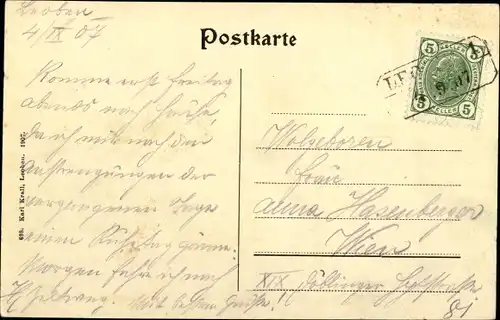 Leoben
4/IX 07
Postkarte
Komme erst Freitag
abends nach Hause,
da ich mir nach den
Anstrengungen der
vergangenen Tage
einen Ruhetag gönne.
Morgen fahre ich nach
Mit besten Grüßen
698. Karl Krall, Leoben. 1907.
5 5
HELLER
5 5
HELLER
LEO
9 07
Wolgeboren
Frau
Anna Hasenberger
Wien
XIX Döblinger Hptstrasse
81